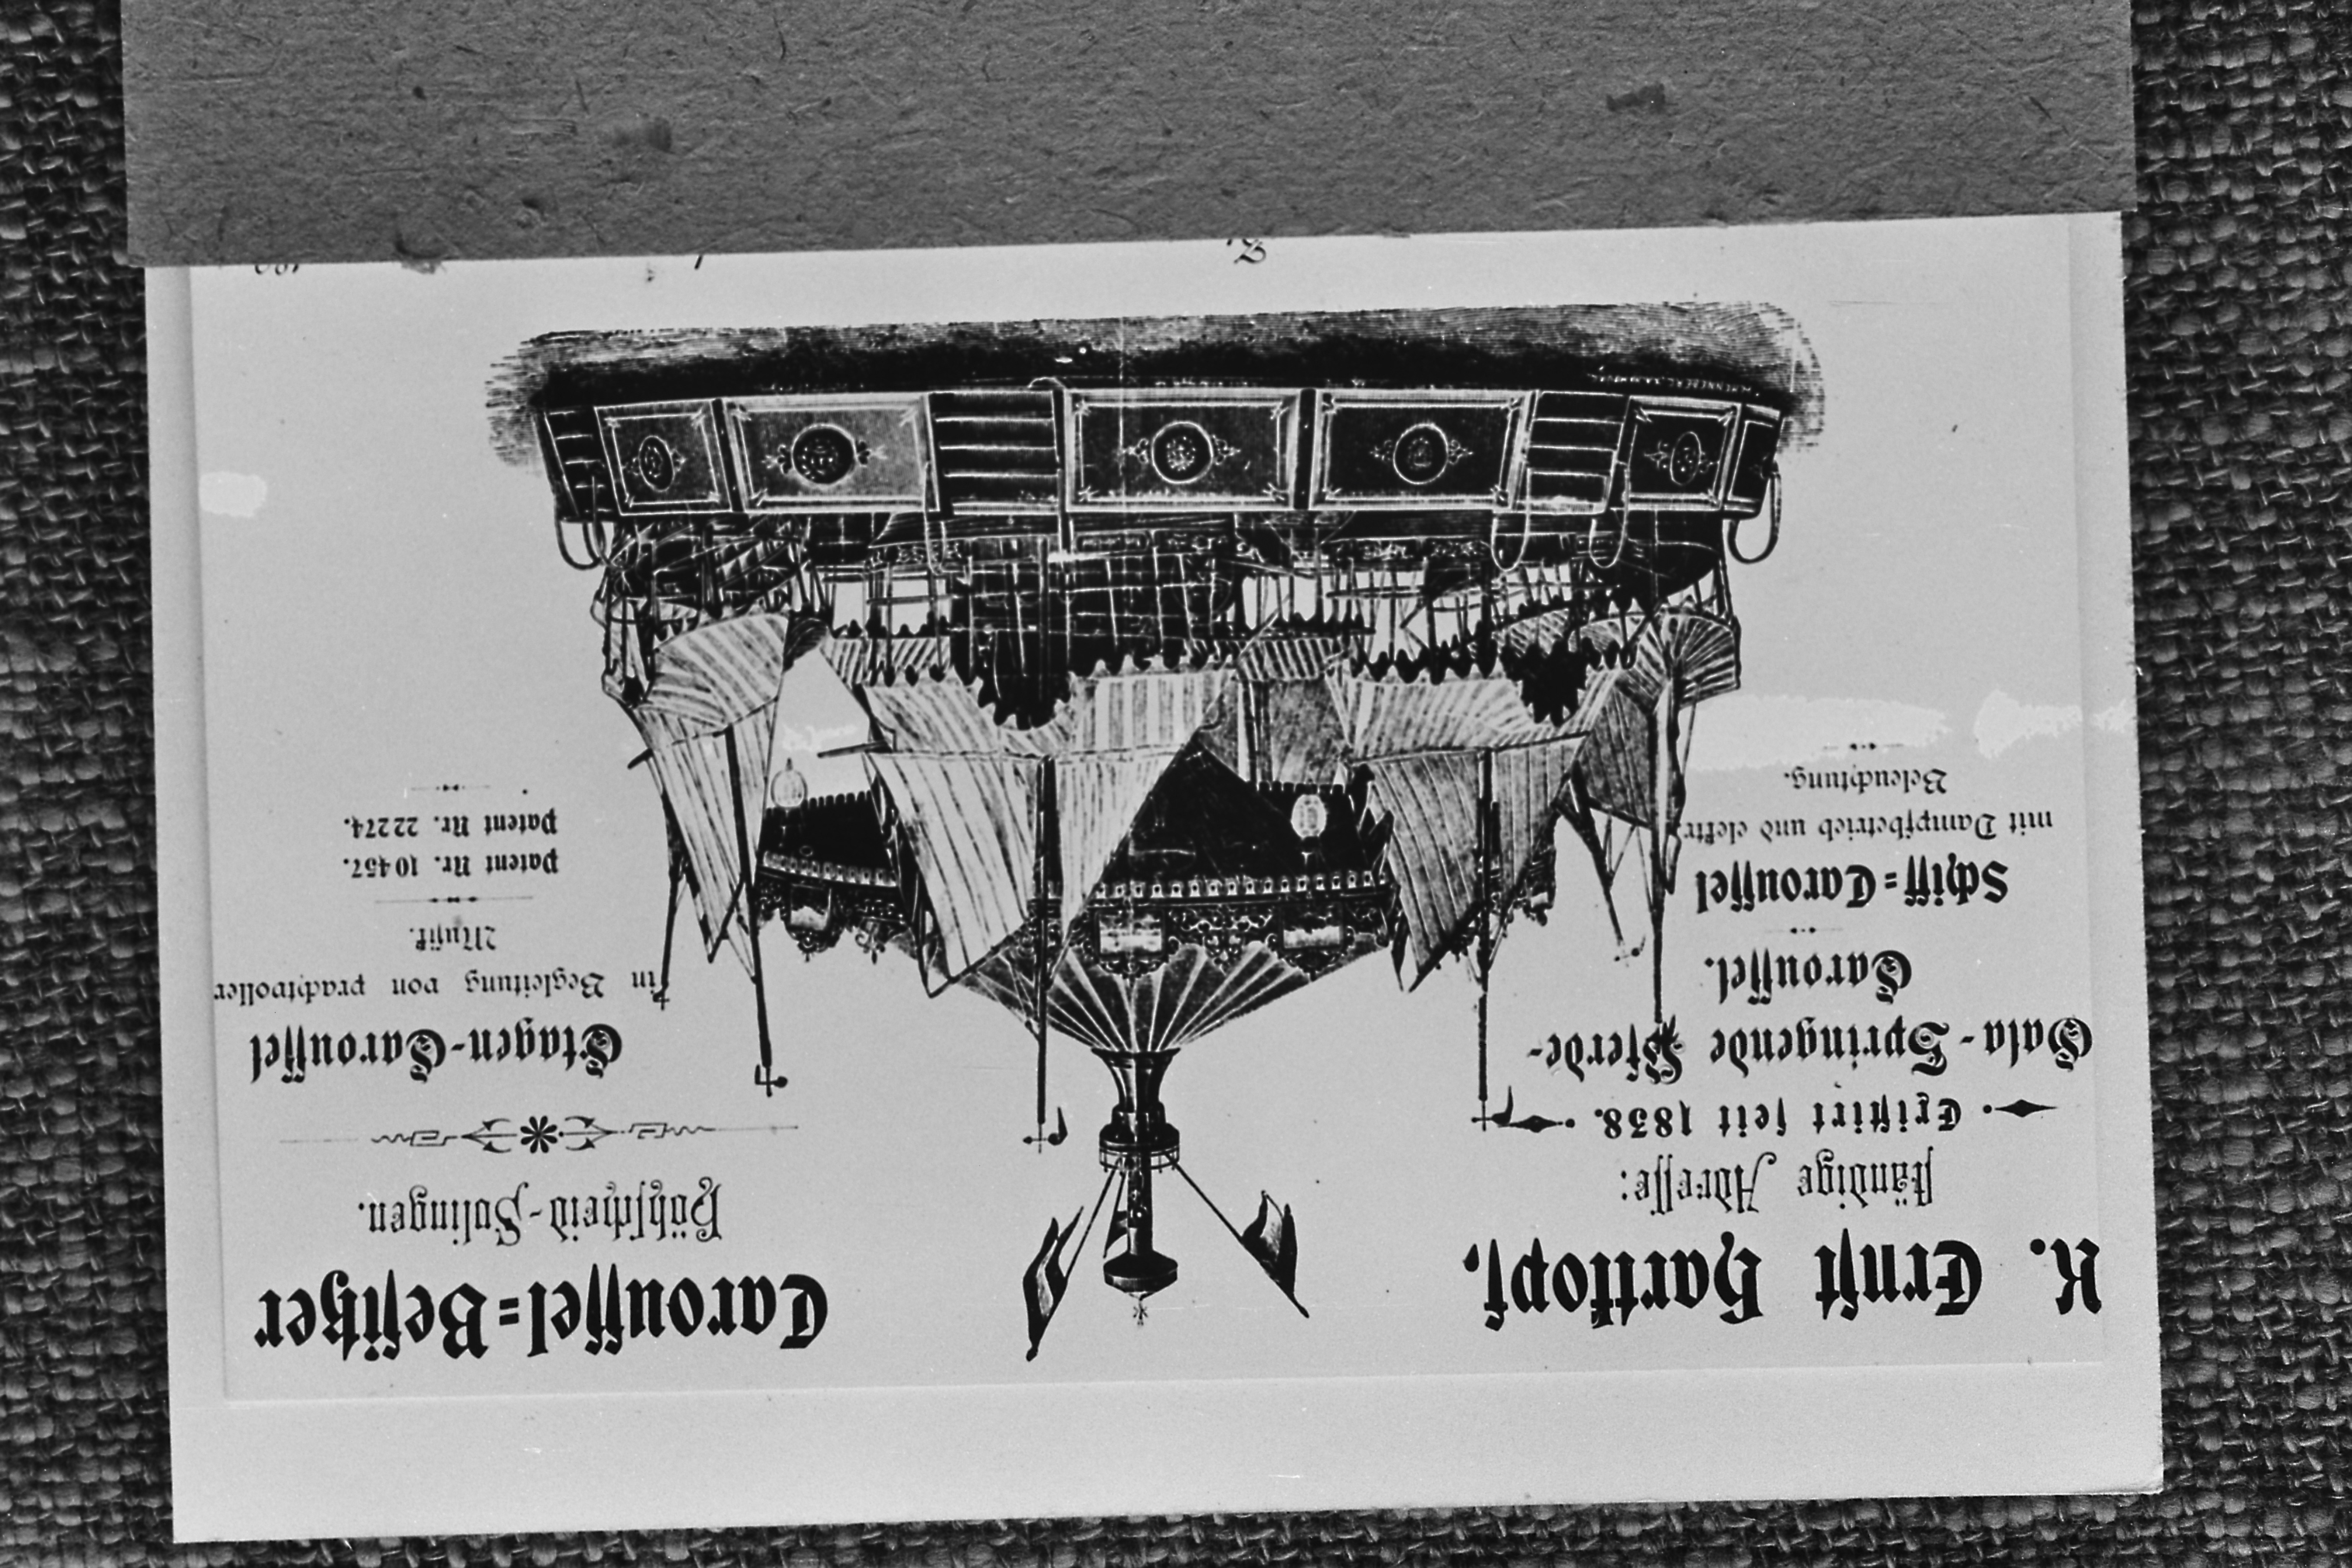 K. Ernst Hartkopf,
ständige Adresse:
Existirt seit 1838.
Gala-Springende Pferde-
Caroussel.
Schiff=Caroussel
mit Dampfbetrieb und elektr.
Beleuchtung.
Caroussel=Besitzer
Höhscheid-Solingen.
Etagen-Caroussel
in Begleitung von prachtvoller
Musik.
Patent Nr. 10457.
Patent Nr. 22274.